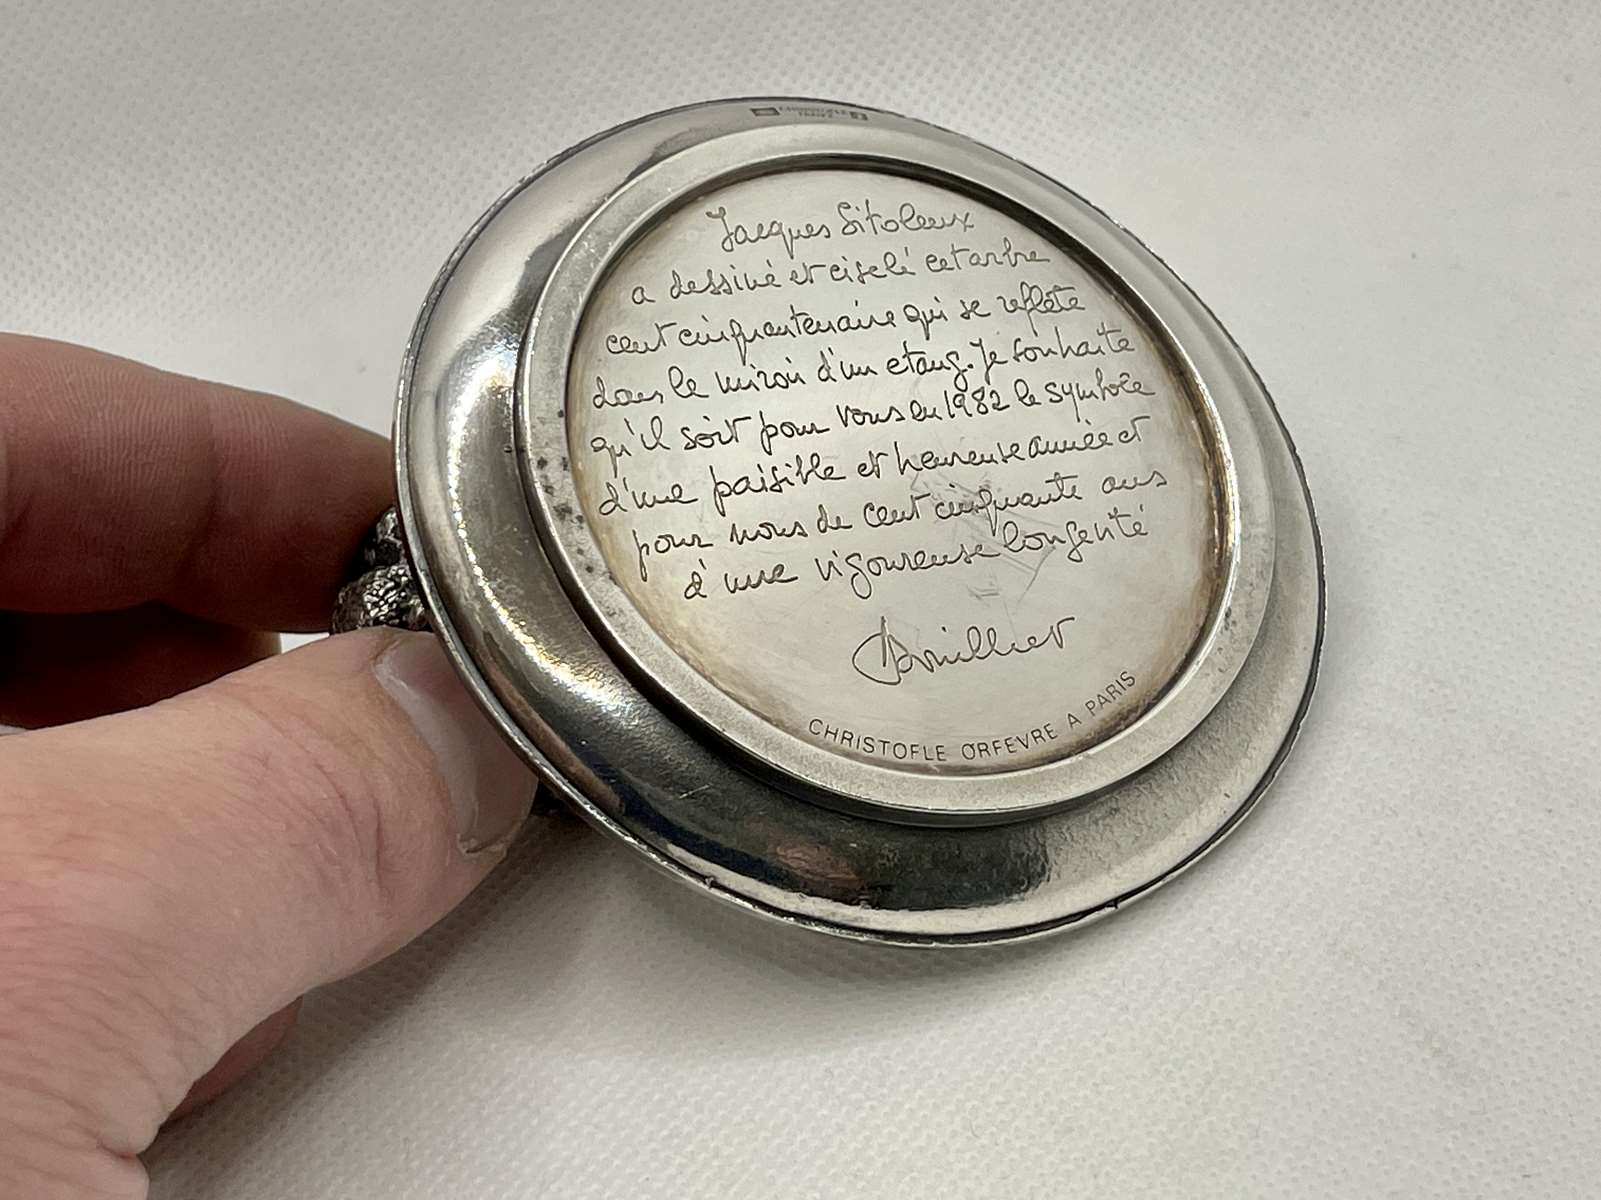 CHRISTOFLE
FRANCE
Jacques Sitoleux
a dessiné et ciselé cet arbre
cent cinquantenaire qui se reflète
dans le miroir d'un etang. Je souhaite
qu'il soit pour vous en 1982 le symbole
d'une paisible et heureuse année et
pour nous de cent cinquante ans
d'une vigoureuse longévité
CHRISTOFLE ORFEVRE A PARIS